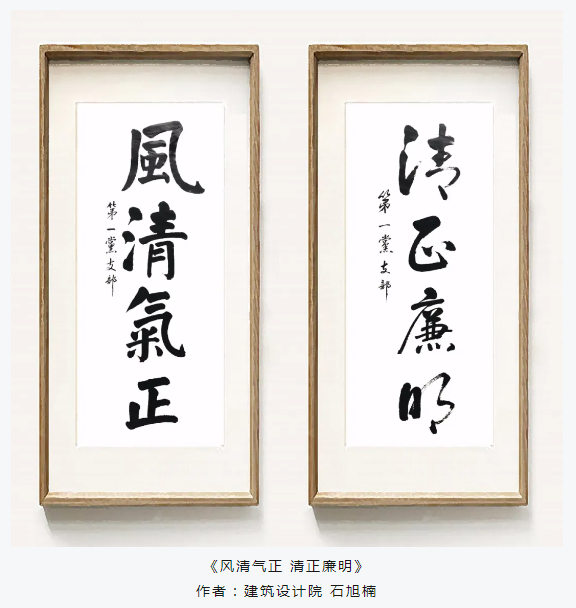 風清氣正
第一黨支部
清正廉明
第一黨支部
《风清气正 清正廉明》
作者：建筑设计院 石旭楠